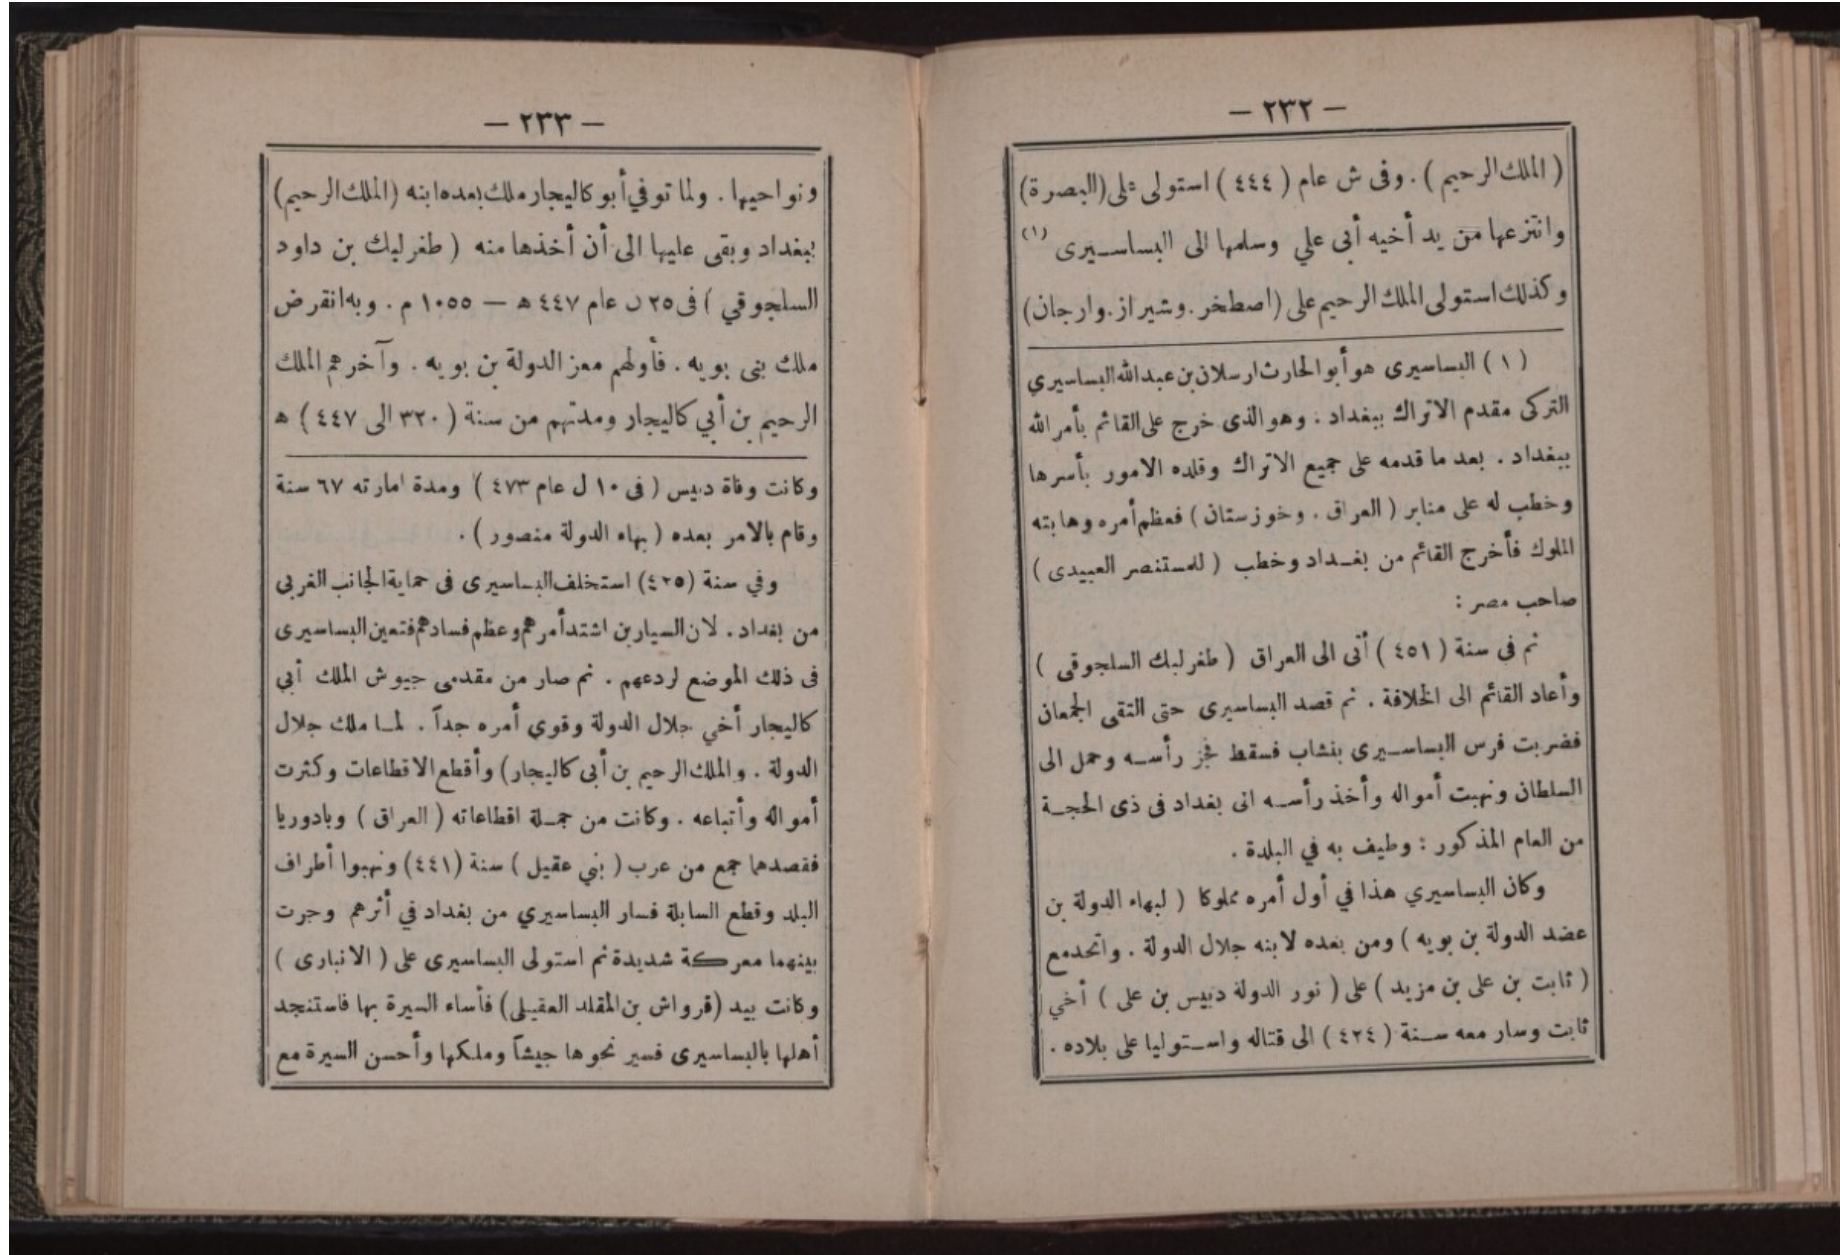 — ٢٣٢ —
( الملك الرحيم ) . وفى ش عام ( ٤٤٤ ) استولى على (البصرة)
وانتزعها من يد أخيه أبى علي وسلمها الى البساسيرى (١)
وكذلك استولى الملك الرحيم على (اصطخر . وشيراز . وارجان)
( ١ ) البساسيرى هو أبو الحارث ارسلان بن عبد الله البساسيري
التركى مقدم الاتراك ببغداد . وهو الذى خرج على القائم بأمر الله
ببغداد . بعد ما قدمه على جميع الاتراك وقلده الامور بأسرها
وخطب له على منابر ( العراق . وخوزستان ) فعظم أمره وهابته
الملوك فأخرج القائم من بغداد وخطب ( للمستنصر العبيدى )
صاحب مصر :
ثم فى سنة ( ٤٥١ ) أتى الى العراق ( طغرلبك السلجوقى )
وأعاد القائم الى الخلافة . ثم قصد البساسيرى حتى التقى الجمعان
فضربت فرس البساسيرى بنشاب فسقط فجز رأسه وحمل الى
السلطان ونهبت أمواله وأخذ رأسه الى بغداد فى ذى الحجة
من العام المذكور : وطيف به في البلدة .
وكان البساسيري هذا في أول أمره مملوكا ( لبهاء الدولة بن
عضد الدولة بن بويه ) ومن بعده لابنه جلال الدولة . واتحد مع
( ثابت بن على بن مزيد ) على ( نور الدولة دبيس بن على ) أخي
ثابت وسار معه سنة ( ٤٢٤ ) الى قتاله واستوليا على بلاده .
— ٢٣٣ —
ونواحيها . ولما توفي أبو كاليجار ملك بعده ابنه (الملك الرحيم)
ببغداد وبقى عليها الى أن أخذها منه ( طغرلبك بن داود
السلجوقي ) فى ٢٥ ن عام ٤٤٧ ه — ١٠٥٥ م . وبه انقرض
ملك بنى بويه . فأولهم معز الدولة بن بويه . وآخرهم الملك
الرحيم بن أبي كاليجار ومدتهم من سنة ( ٣٢٠ الى ٤٤٧ ) ه
وكانت وفاة دبيس ( فى ١٠ ل عام ٤٧٣ ) ومدة امارته ٦٧ سنة
وقام بالامر بعده ( بهاء الدولة منصور ) .
وفي سنة (٤٢٥) استخلف البساسيرى فى حماية الجانب الغربى
من بغداد . لان السيارين اشتد أمرهم وعظم فسادهم فتعين البساسيرى
فى ذلك الموضع لردعهم . ثم صار من مقدمى جيوش الملك أبي
كاليجار أخي جلال الدولة وقوي أمره جداً . لما ملك جلال
الدولة . والملك الرحيم بن أبى كاليجار) وأقطع الاقطاعات وكثرت
أمواله وأتباعه . وكانت من جملة اقطاعاته ( العراق ) وبادوريا
فقصدهما جمع من عرب ( بني عقيل ) سنة (٤٤١) ونهبوا أطراف
البلد وقطع السابلة فسار البساسيري من بغداد في أثرهم وجرت
بينهما معركة شديدة ثم استولى البساسيرى على ( الانبارى )
وكانت بيد (قرواش بن المقلد العقيلى) فأساء السيرة بها فاستنجد
أهلها بالبساسيرى فسير نحوها جيشاً وملكها وأحسن السيرة مع